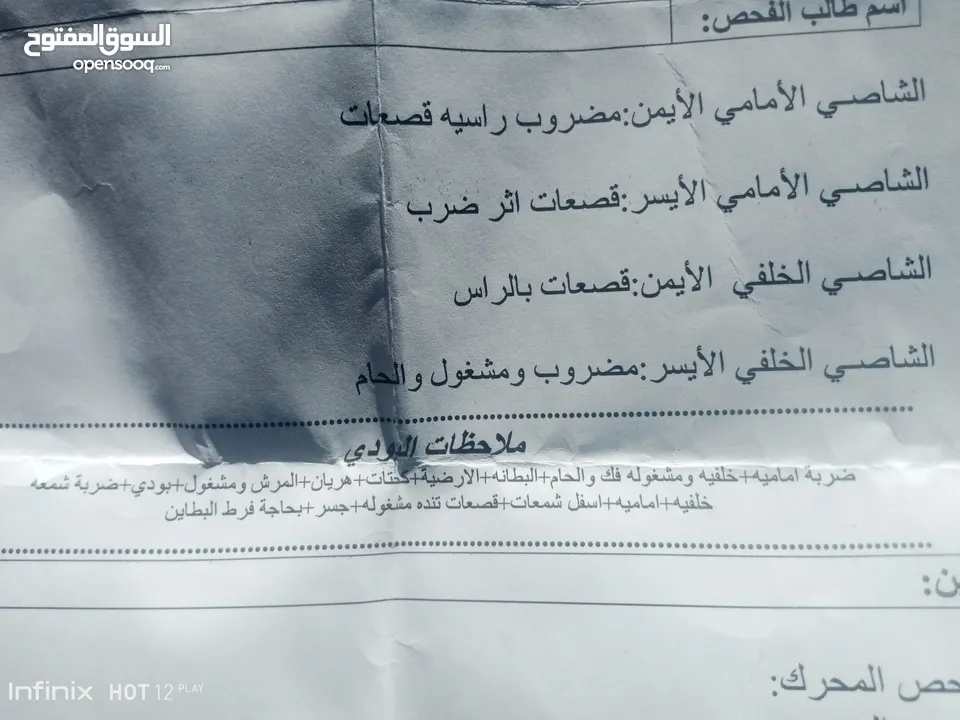 السوق المفتوح
opensooq.com
اسم طالب الفحص:
الشاصي الأمامي الأيمن:مضروب راسيه قصعات
الشاصي الأمامي الأيسر:قصعات اثر ضرب
الشاصي الخلفي الأيمن:قصعات بالراس
الشاصي الخلفي الأيسر:مضروب ومشغول والحام
ملاحظات البودي
ضربة اماميه+خلفيه ومشغوله فك والحام+البطانه+الارضية+كحتات+هريان+المرش ومشغول+بودي+ضربة شمعه
خلفيه+اماميه+اسفل شمعات+قصعات تنده مشغوله+جسر+بحاجة فرط البطاين
المحرك:
Infinix HOT 12 PLAY